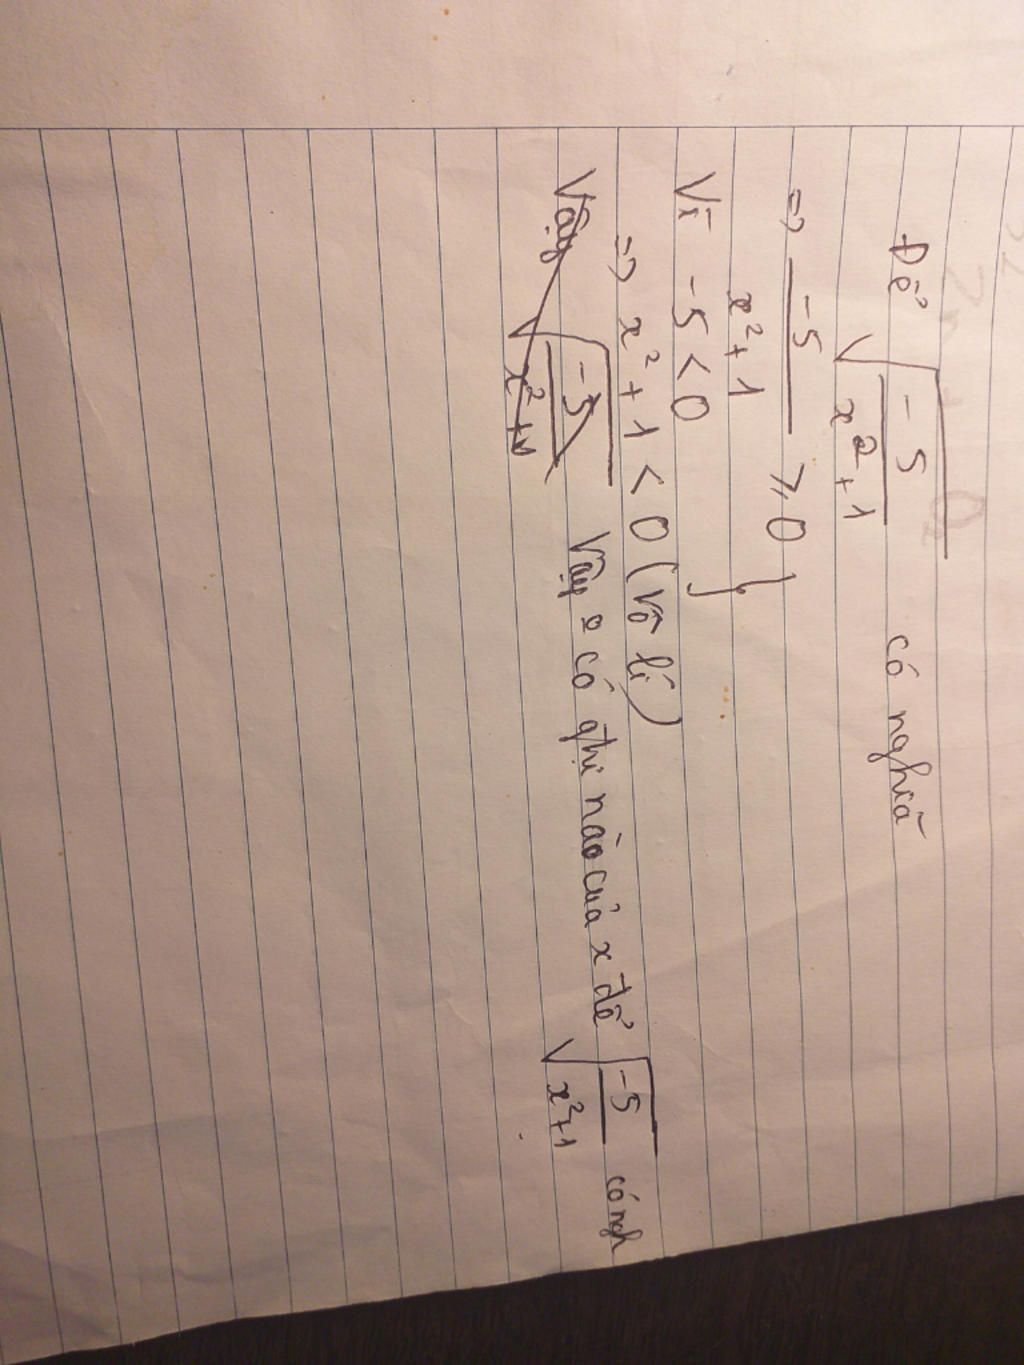 Để √(-5/(x²+1)) có nghĩa
=> -5/(x²+1) ≥ 0 }
Vì -5 < 0
=> x² + 1 < 0 (vô lí)
Vậy √(-5/(x²+1)) Vậy o có ghị nào của x để √(-5/(x²+1)) có ngh